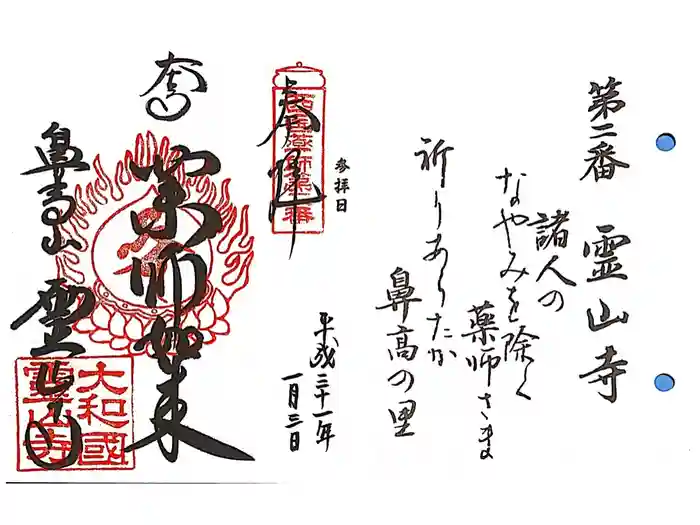 第二番 霊山寺
諸人の
なやみを除く
薬師さま
祈りあらたか
鼻高の里
参拝日
平成三十一年
一月三日
奉拝
西国薬師第二番
薬師如来
鼻高山 霊山寺
大和國
霊山寺